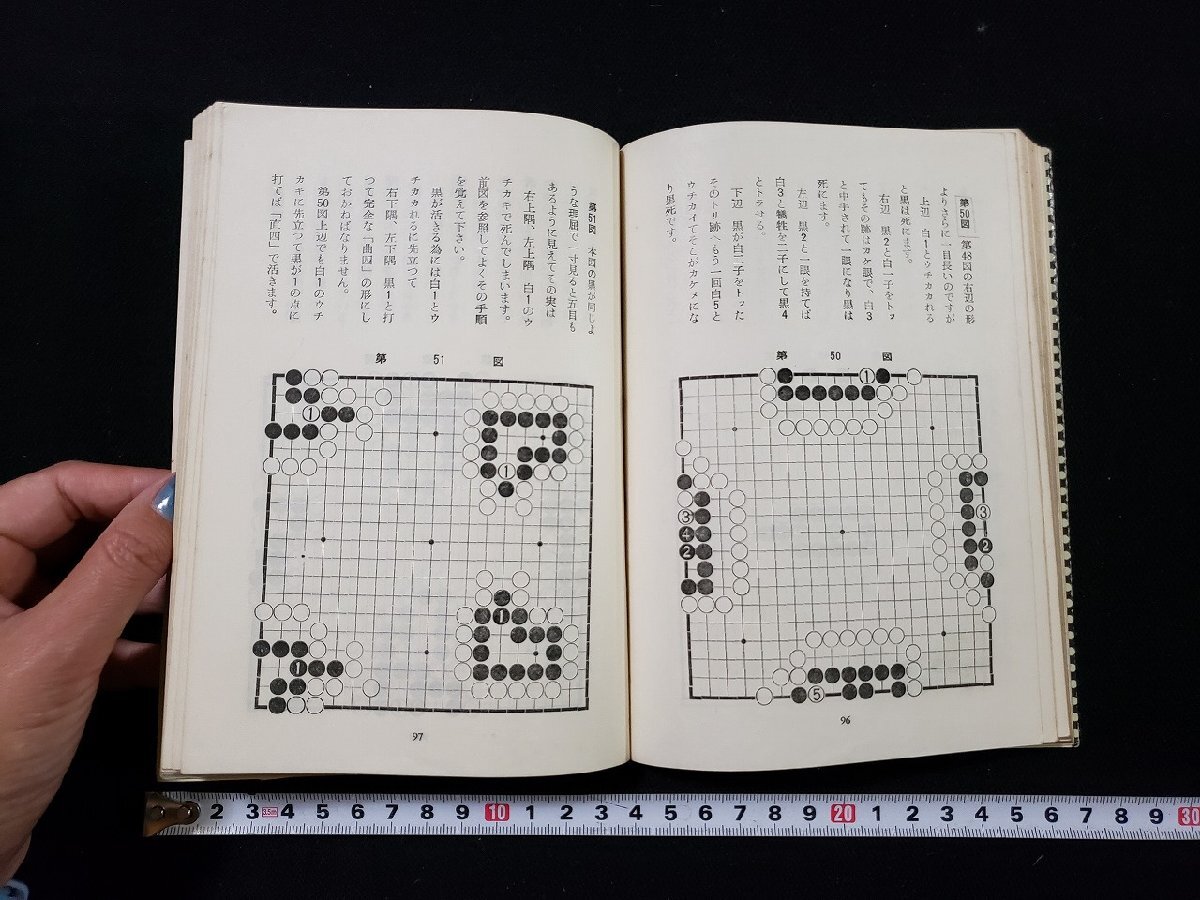 第50図 第48図の右辺の形
よりさらに一目長いのですが
上辺 白1とウチカカれる
と黒は死にます。
右辺 黒2と白一子をトッ
てもその跡はカケ眼で、白3
と中手されて一眼になり黒は
死にます。
左辺 黒2と一眼を持てば
白3と犠牲を二子にして黒4
とトラせる。
下辺 黒が白二子をトッた
そのトリ跡へもう一回白5と
ウチカイてそこがカケメにな
り黒死です。
第 50 図
① ③ ② ③ 4 2 ⑤
96
第51図 本図の黒が同じよ
うな理屈で一寸見ると五目も
あるように見えてその実は
右上隅、左上隅 白1のウ
チカキで死んでしまいます。
前図を参照してよくその手順
を覚えて下さい。
黒が活きる為には白1とウ
チカカれるに先立つて
右下隅、左下隅 黒1と打
つて完全な「曲四」の形にし
ておかねばなりません。
第50図上辺でも白1のウチ
カキに先立つて黒が1の点に
打てば「直四」で活きます。
第 51 図
① ① 1 1
97
2 3 3.5m 4 5 6 7 8 9 10 1 2 3 4 5 6 7 8 9 20 1 2 3 4 5 6 7 8 9 30